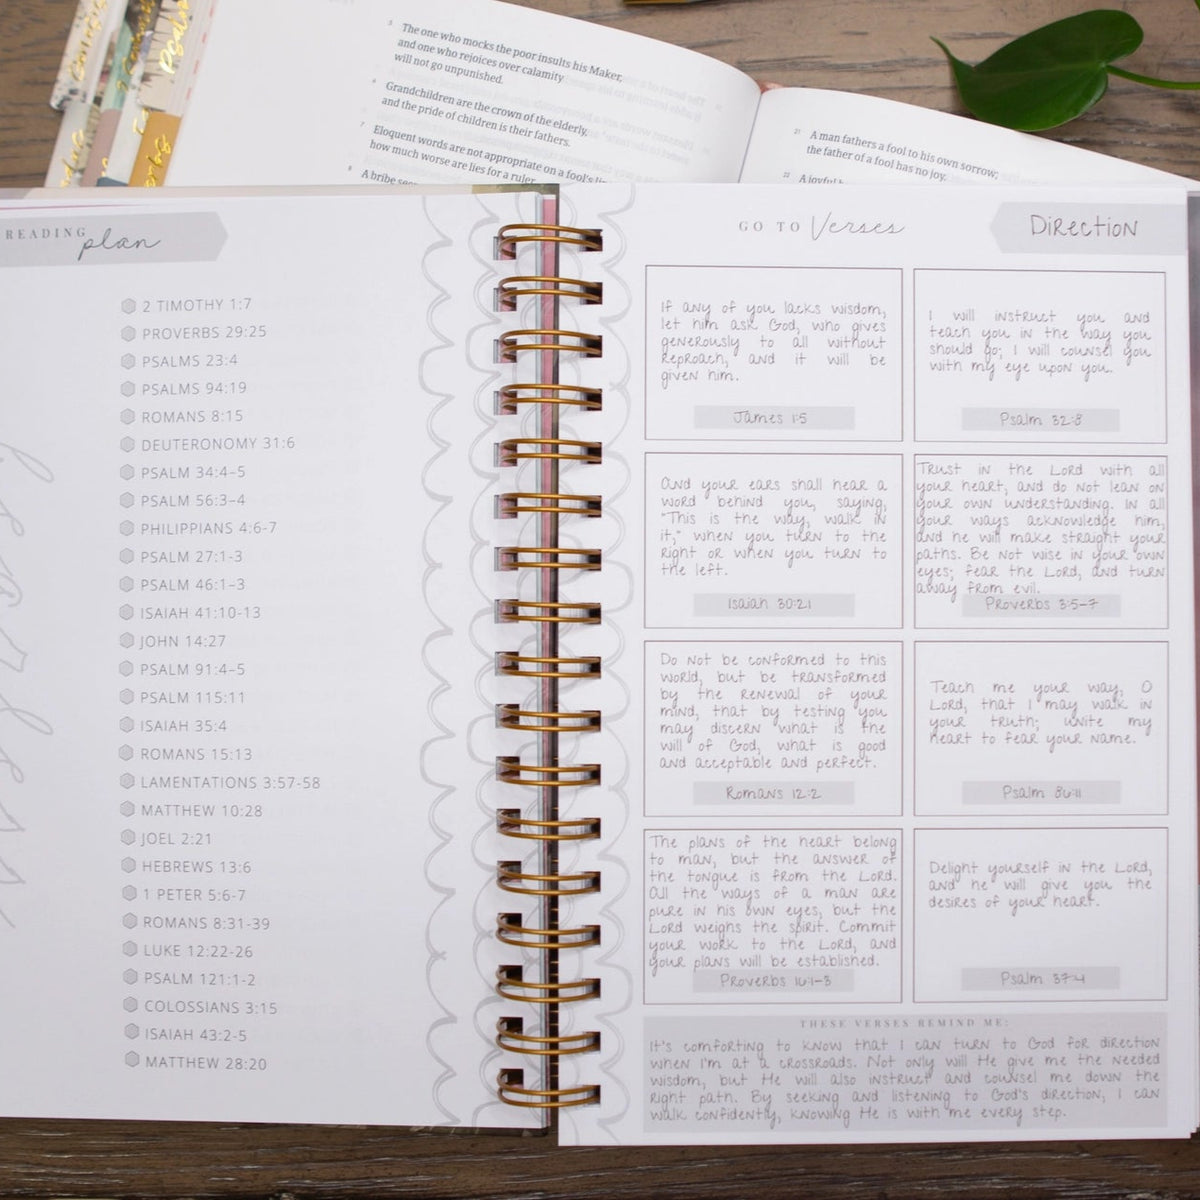 5 The one who mocks the poor insults his Maker,
and one who rejoices over calamity
will not go unpunished.
6 Grandchildren are the crown of the elderly,
and the pride of children is their fathers.
7 Eloquent words are not appropriate on a fool's
how much worse are lies for a ruler
8 A bribe
21 A man fathers a fool to his own sorrow;
the father of a fool has no joy.
22 A joyful
READING
plan
2 TIMOTHY 1:7
PROVERBS 29:25
PSALMS 23:4
PSALMS 94:19
ROMANS 8:15
DEUTERONOMY 31:6
PSALM 34:4–5
PSALM 56:3–4
PHILIPPIANS 4:6-7
PSALM 27:1-3
PSALM 46:1–3
ISAIAH 41:10-13
JOHN 14:27
PSALM 91:4–5
PSALM 115:11
ISAIAH 35:4
ROMANS 15:13
LAMENTATIONS 3:57-58
MATTHEW 10:28
JOEL 2:21
HEBREWS 13:6
1 PETER 5:6-7
ROMANS 8:31-39
LUKE 12:22-26
PSALM 121:1-2
COLOSSIANS 3:15
ISAIAH 43:2-5
MATTHEW 28:20
GO TO Verses
Direction
If any of you lacks wisdom,
let him ask God, who gives
generously to all without
reproach, and it will be
given him.
James 1:5
I will instruct you and
teach you in the way you
should go; I will counsel you
with my eye upon you.
Psalm 32:8
And your ears shall hear a
word behind you, saying,
"This is the way, walk in
it," when you turn to the
right or when you turn to
the left.
Isaiah 30:21
Trust in the Lord with all
your heart, and do not lean on
your own understanding. In all
your ways acknowledge him,
and he will make straight your
paths. Be not wise in your own
eyes; fear the Lord, and turn
away from evil.
Proverbs 3:5-7
Do not be conformed to this
world, but be transformed
by the renewal of your
mind, that by testing you
may discern what is the
will of God, what is good
and acceptable and perfect.
Romans 12:2
Teach me your way, O
Lord, that I may walk in
your truth; unite my
heart to fear your name.
Psalm 86:11
The plans of the heart belong
to man, but the answer of
the tongue is from the Lord.
All the ways of a man are
pure in his own eyes, but the
Lord weighs the spirit. Commit
your work to the Lord, and
your plans will be established.
Proverbs 16:1-3
Delight yourself in the Lord,
and he will give you the
desires of your heart.
Psalm 37:4
THESE VERSES REMIND ME:
It's comforting to know that I can turn to God for direction
when I'm at a crossroads. Not only will He give me the needed
wisdom, but He will also instruct and counsel me down the
right path. By seeking and listening to God's direction, I can
walk confidently, knowing He is with me every step.